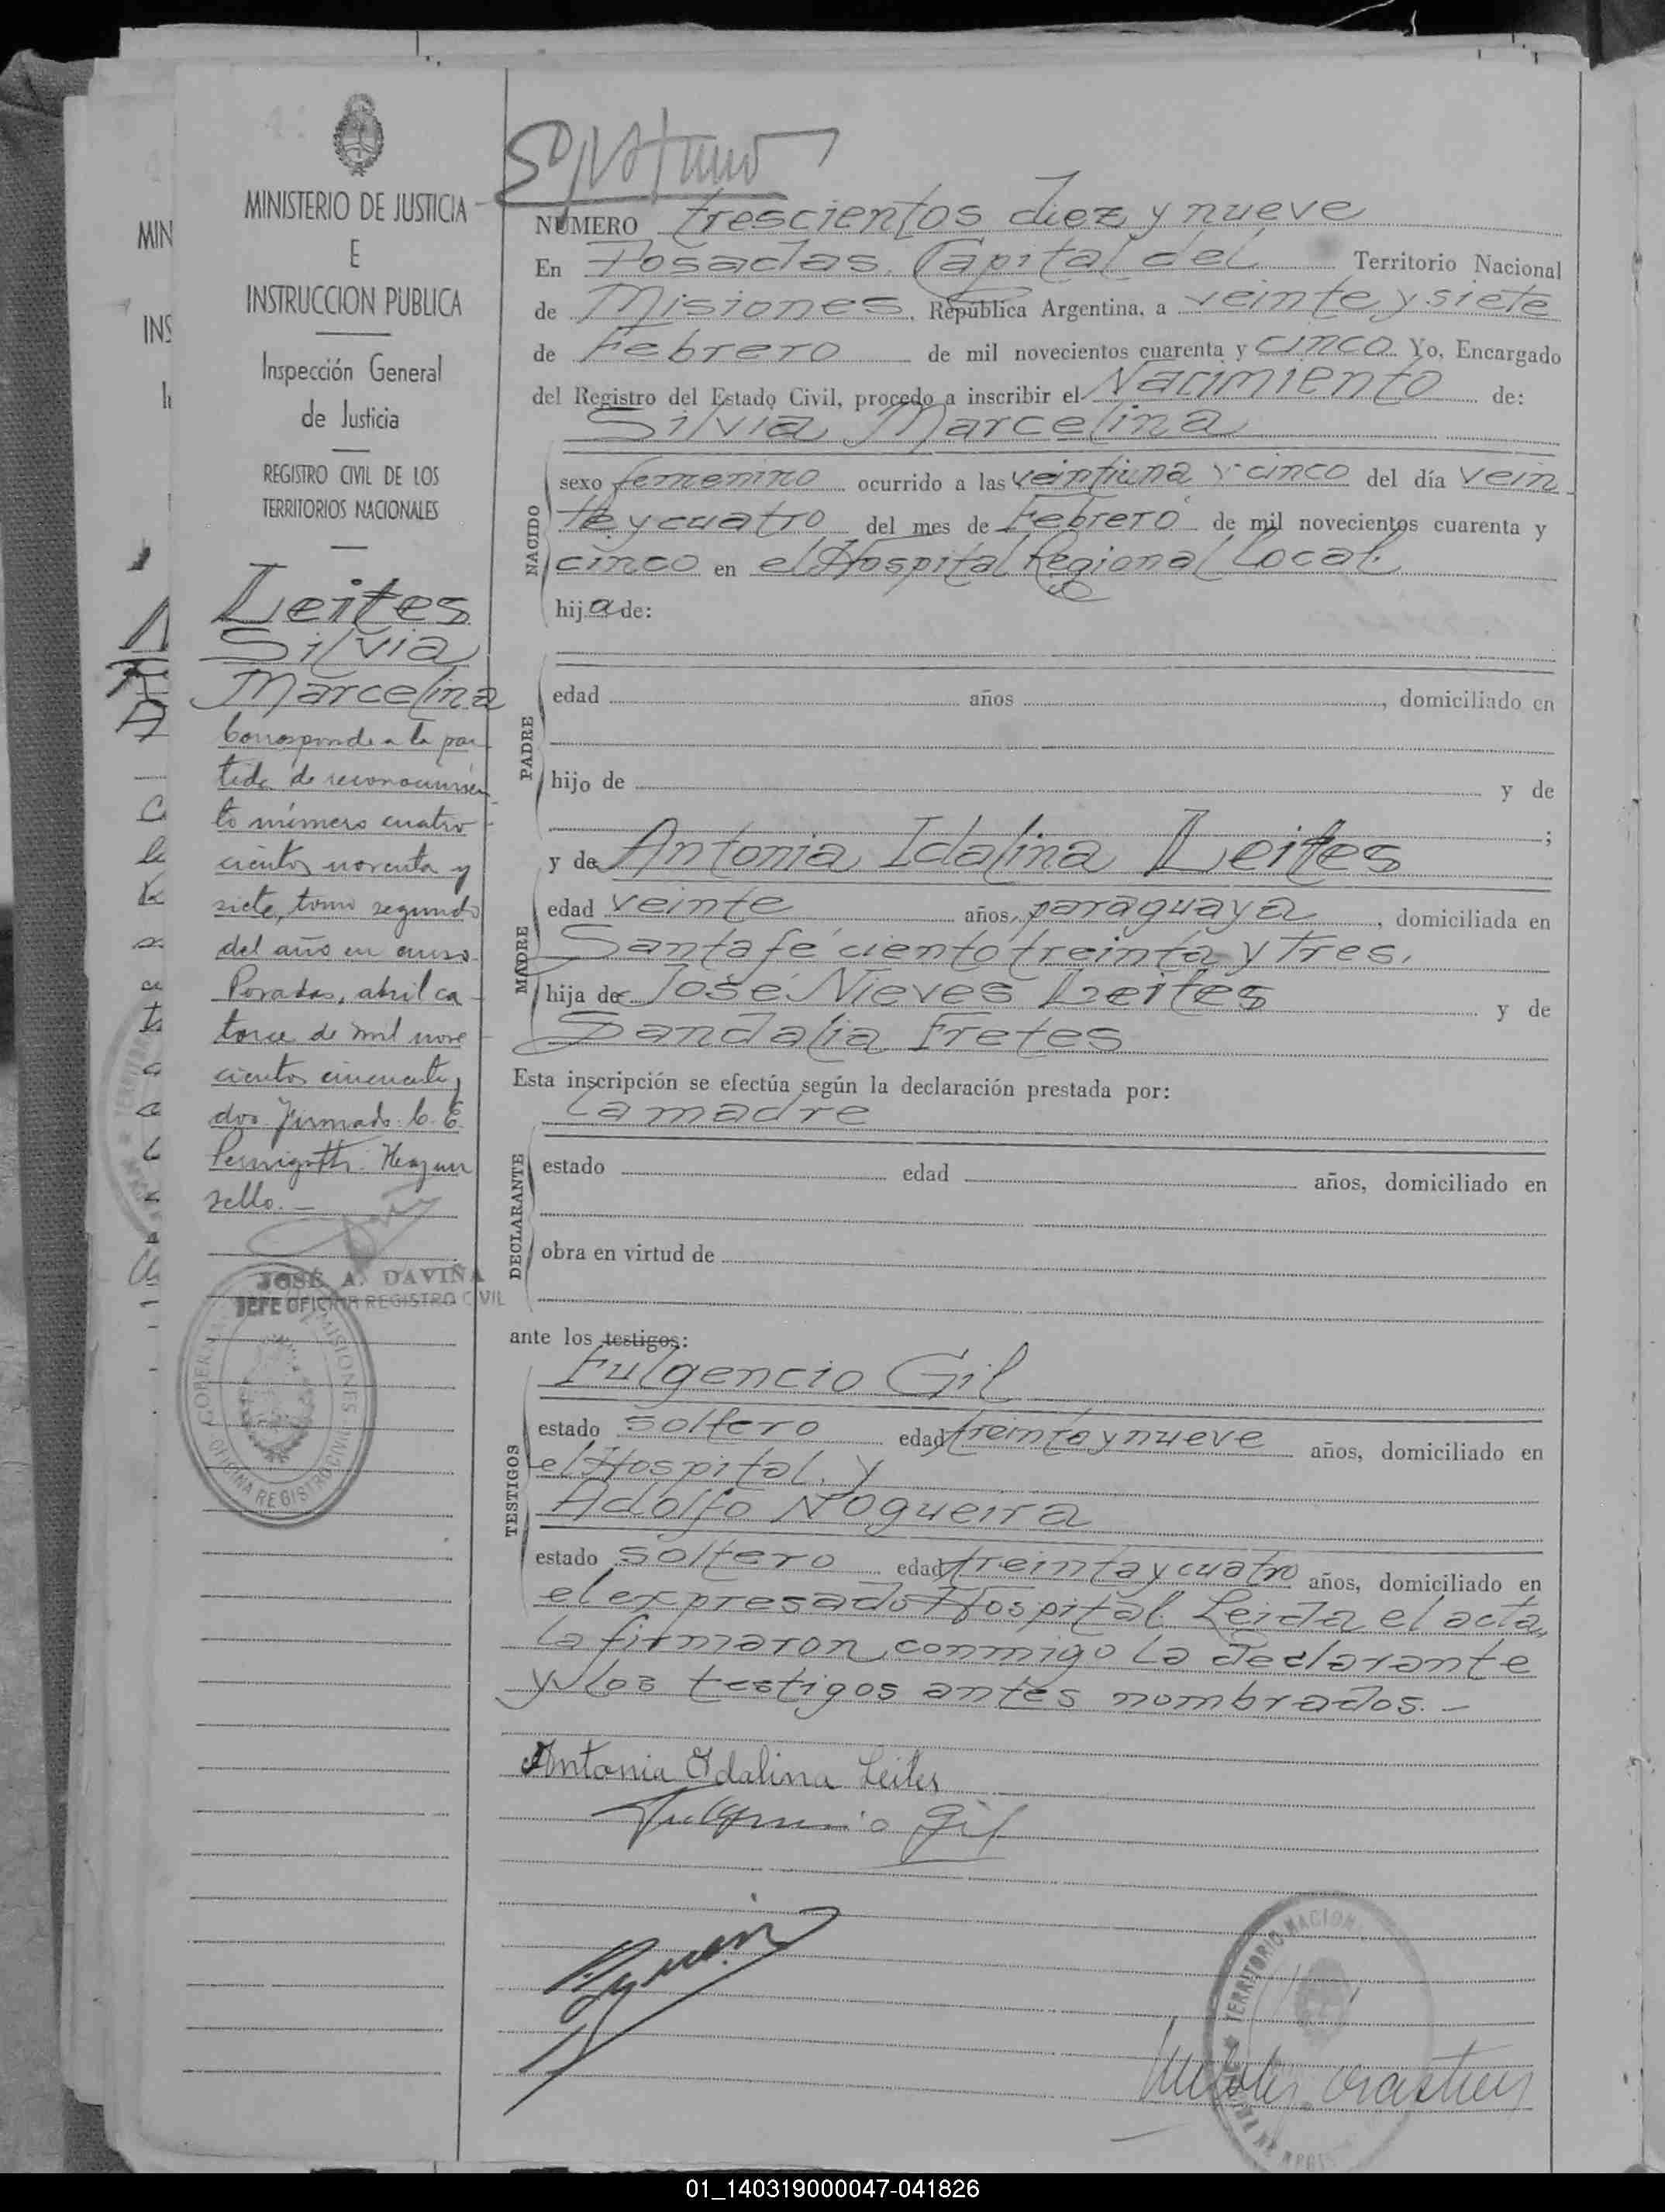 MINISTERIO DE JUSTICIA
E
INSTRUCCION PUBLICA
Inspección General
de Justicia
REGISTRO CIVIL DE LOS
TERRITORIOS NACIONALES
Leites
Silvia
Marcelina
Corresponde a la par-
tida de reconocimien-
to número cuatro-
cientos noventa y
siete, tomo segundo
del año en curso.
Posadas, abril ca-
torce de mil nove-
cientos cincuenta y
dos. Firmado: C. E.
Hay un
sello.-
JOSÉ A. DAVIÑA
JEFE OFICINA REGISTRO CIVIL
MISIONES
OFICINA REGISTRO CIVIL
NUMERO trescientos diez y nueve
En Posadas, Capital del Territorio Nacional
de Misiones, República Argentina, a veinte y siete
de Febrero de mil novecientos cuarenta y cinco Yo, Encargado
del Registro del Estado Civil, procedo a inscribir el Nacimiento de:
Silvia Marcelina
NACIDO
sexo femenino ocurrido a las veintiuna y cinco del día vein
te y cuatro del mes de Febrero de mil novecientos cuarenta y
cinco en el Hospital Regional local.
hija de:
PADRE
edad años , domiciliado en
hijo de y de
;
y de Antonia Idalina Leites
MADRE
edad veinte años, paraguaya , domiciliada en
Santa fé ciento treinta y tres,
hija de José Nieves Leites y de
Sandalia Fretes
Esta inscripción se efectúa según la declaración prestada por:
la madre
DECLARANTE
estado edad años, domiciliado en
obra en virtud de
ante los testigos:
Fulgencio Gil
TESTIGOS
estado soltero edad treinta y nueve años, domiciliado en
el Hospital, y
Adolfo Nogueira
estado soltero edad treinta y cuatro años, domiciliado en
el expresado Hospital. Leida el acta,
la firmaron conmigo la declarante
y los testigos antes nombrados.-
Antonia Idalina Leites
Fulgencio Gil
TERRITORIO NACIONAL
01_140319000047-041826